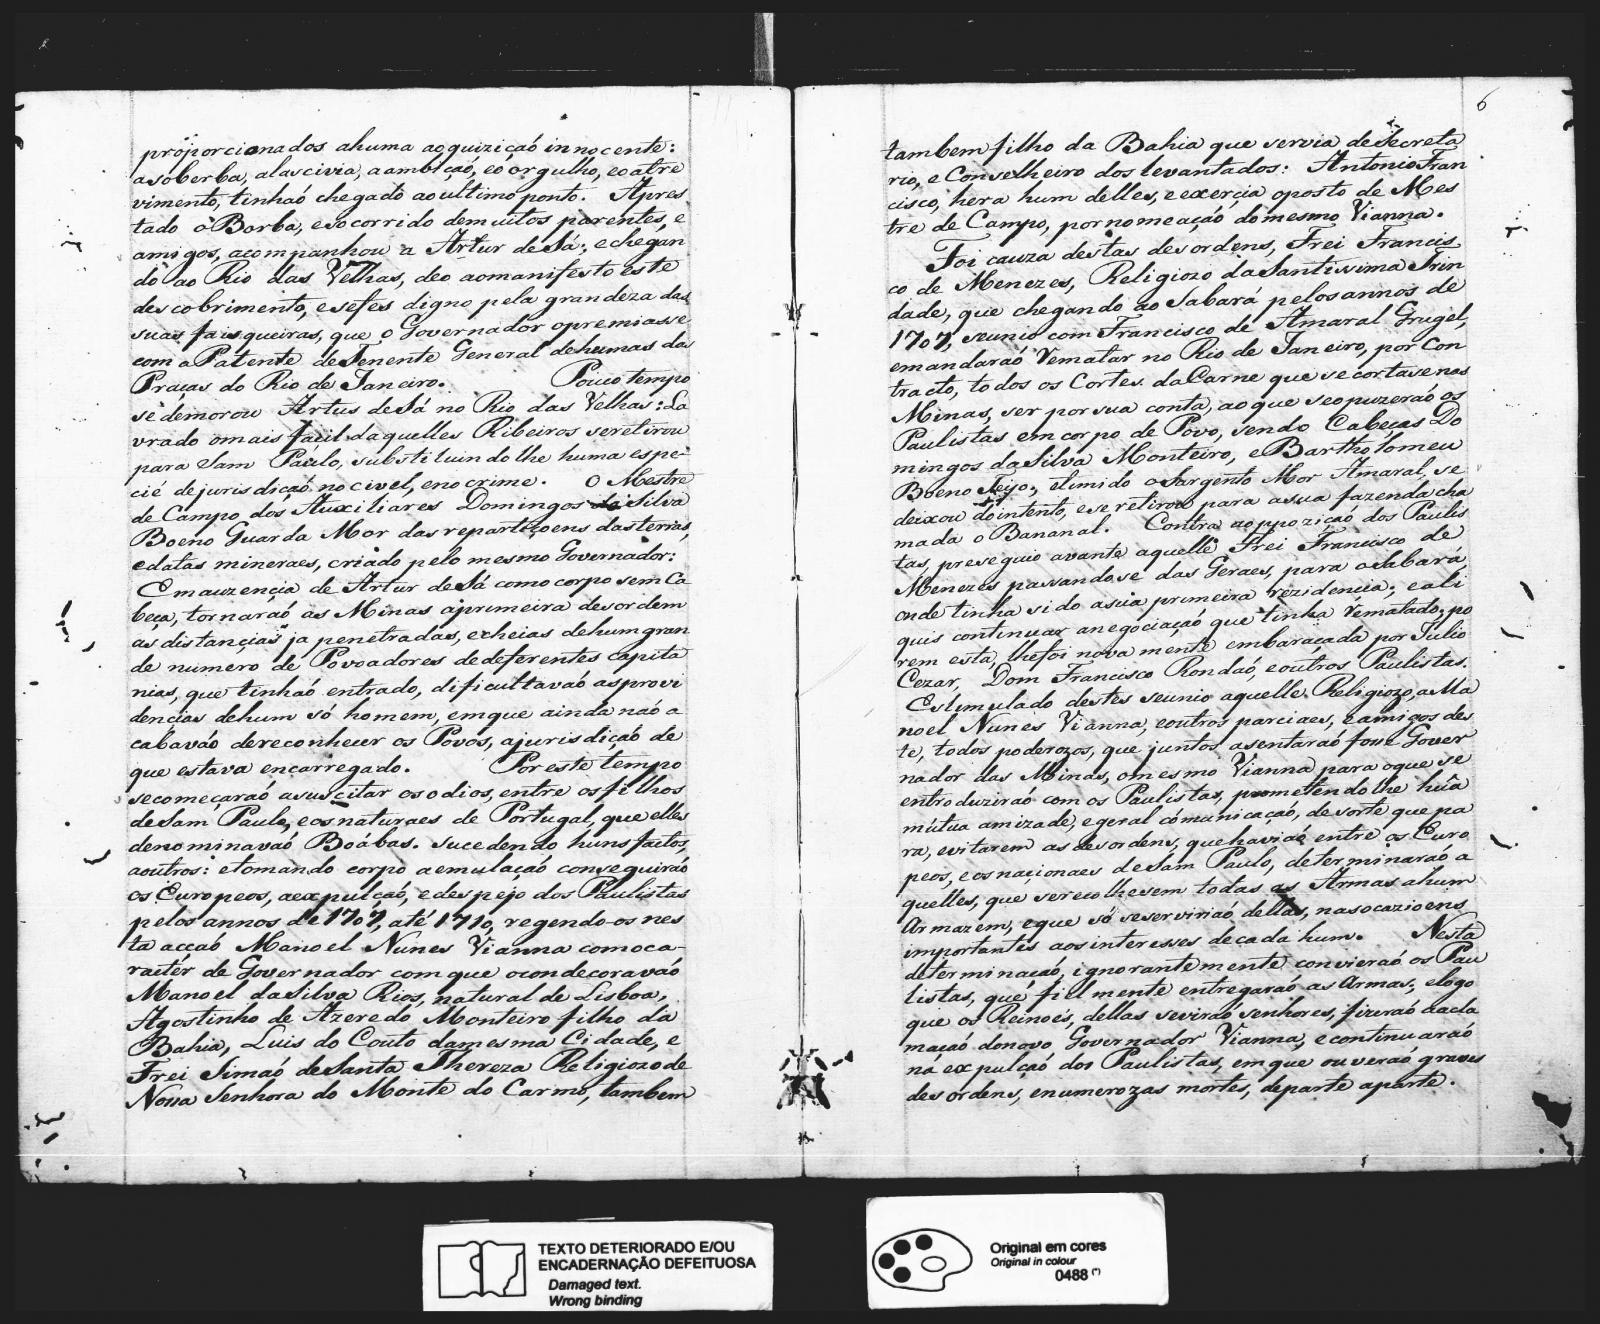 proporcionados ahuma aquizicaó innocente:
asoberba, alascivia, aambicaó, eó orgulho, eoatre
vimento, tinhaó chegado aoultimo ponto. Apres
tado o Borba, esocorrido demuitos parentes, e
amigos, acompanhou a Artur deSá: echegan
do ao Rio das Velhas, deo aomanifesto este
descobrimento, esefes digno pela grandeza das
suas faisqueiras, que o Governador opremiasse
com a Patente deTenente General dehumas das
Praças do Rio de Janeiro. Pouco tempo
se demorou Artus deSá no Rio das Velhas: La
vrado omais facil daquelles Ribeiros seretirou
para Sam Paulo, substituindolhe huma espe-
cie dejurisdicaó nocivel, enocrime. O Mestre
de Campo dos Auxiliares Domingos da Silva
Boeno Guarda Mor das repartiçoens dasterras,
edatas mineraes, criado pelo mesmo Governador:
Emauzencia de Artur deSá como corpo sem Ca
beça, tornaraó as Minas aprimeira desordem
as distancias ja penetradas, echeias dehumgran
de numero de Povoadores dedeferentes capita
nias, que tinhaó entrado, dificultavaó asprovi
dencias dehum só homem, emque ainda naó a
cabavaó dereconhecer os Povos, ajurisdiçaó de
que estava encarregado. Poreste tempo
secomeçaraó asuscitar osodios, entre osfilhos
deSam Paulo, eosnaturaes de Portugal, que elles
denominavaó Boábas. sucedendo huns factos
aoutros: etomando corpo aemulaçaó conseguiraó
os Europeos, aexpulçaó, edespejo dos Paulistas
pelos annos de 1707, até 1710, regendo-os nes
ta acçaó Manoel Nunes Vianna comoca-
racter de Governador com que ocondecoravaó
Manoel daSilva Rios, natural de Lisboa,
Agostinho de Azeredo Monteiro filho da
Bahia, Luis do Couto damesma Cidade, e
Frei Simaó deSanta Thereza Religiozo de
Nossa Senhora do Monte do Carmo, tambem
6
tambem filho da Bahia que servia deSecreta
rio, e Conselheiro dos levantados: Antonio Fran
cisco, hera hum delles, eexercia oposto de Mes
tre de Campo, pornomeaçaó domesmo Vianna.
Foi cauza destas desordens, Frei Francis
co de Menezes, Religiozo daSantissima Trin
dade, que chegando ao Sabará pelosannos de
1707, seunio com Francisco de Amaral Grugel,
emandaraó Rematar no Rio de Janeiro, por Con
tracto, todos os Cortes da Carne que se cortase nas
Minas, ser por sua conta, ao que seopuzeraó os
Paulistas emcorpo de Povo, sendo Cabeças Do
mingos daSilva Monteiro, eBartholomeu
Boeno Feijo, etimido oSargento Mor Amaral, se
deixou dointento, eseretirou para asua fazenda cha
mada o Bananal. Contra aoppoziçaó dos Paulis
tas, preseguio avante aquelle Frei Francisco de
Menezes passandose das Geraes, para oSabará,
onde tinha sido asua primeira rezidencia; eali
quis continuar anegociaçaó que tinha rematado; po
rem esta, lhefoi novamente embaraçada por Julio
Cezar, Dom Francisco Rondaó, eoutros Paulistas.
Estimulado destes seunio aquelle Religiozo, aMa
noel Nunes Vianna, eoutros parciaes, eamigos des
te, todos poderozos, que juntos asentaraó fose Gover
nador das Minas, omesmo Vianna para oque se
entroduziraó com os Paulistas, prometendolhe huã
mútua amizade, egeral cómunicaçaó, desorte que pa
ra, evitarem as desordens, quehaviaó entre os Euro
peos, eosnacionaes deSam Paulo, determinaraó a
quelles, que serecolhesem todas as Armas ahum
Armazem, eque só seserviriaó dellas, nasocazioens
importantes aosinteresses decada hum. Nesta
determinaçaó, ignorantemente convieraó os Pau
listas, que fielmente entregaraó as Armas; elogo
que os Reinoes, dellas seviraó senhores, fizeraó aacla
maçaó donovo Governador Vianna, econtinuaraó
na expulçaó dos Paulistas, emque ouveraó graves
desordens, enumerozas mortes, departe aparte.
TEXTO DETERIORADO E/OU
ENCADERNAÇÃO DEFEITUOSA
Damaged text.
Wrong binding
Original em cores
Original in colour
0488 (*)